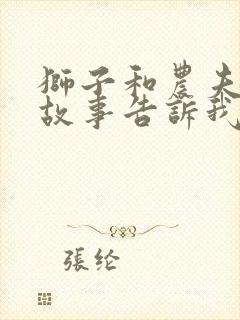 獅子和農夫
故事告訴我
張纶